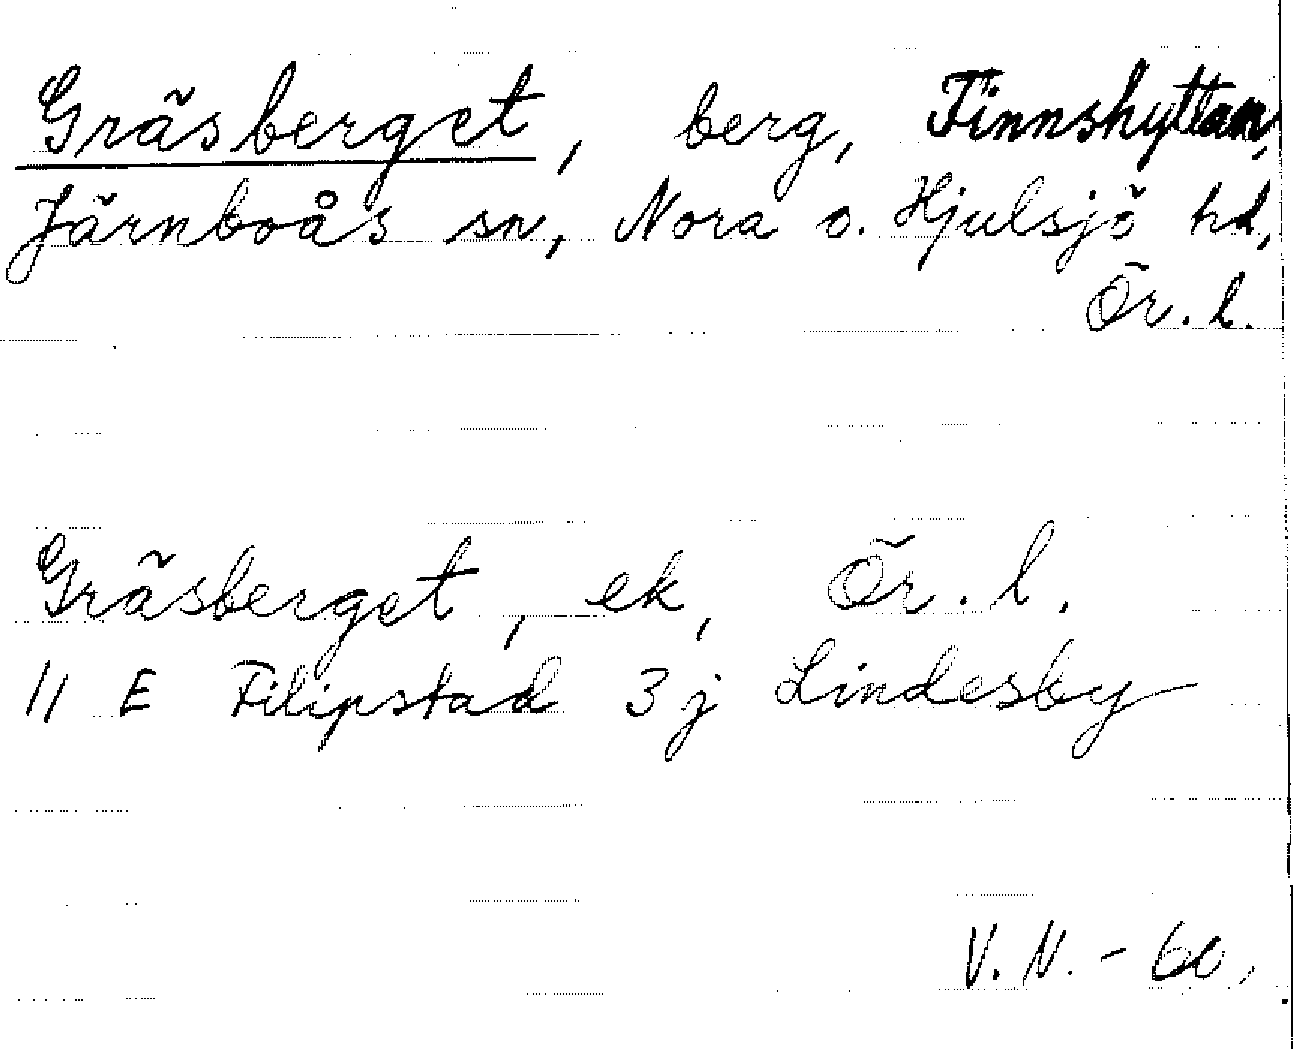 Gräsberget, berg, Finnshyttan,
Järnboås sn, Nora o. Hjulsjö hd,
Ör. l.
Gräsberget, ek, Ör. l.
11 E Filipstad 3 j Lindesby
V. N. - 60.